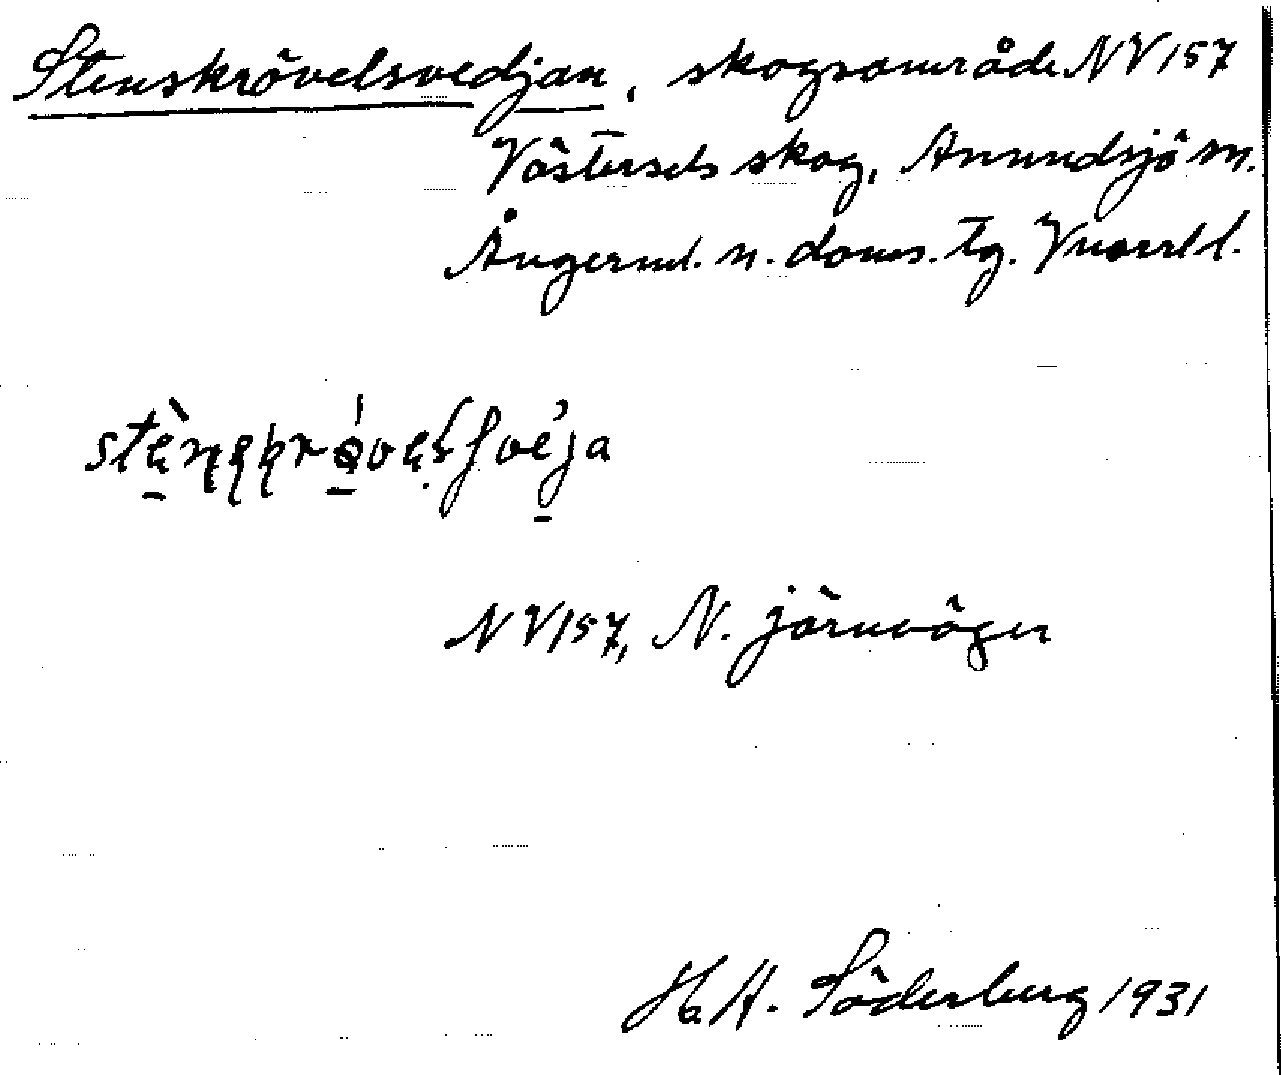 Stenskrövelsvedjan, skogsområde NV157
Västersels skog, Anundsjö sn.
Ångerml. n. doms. tg. Vnorrl l.
NV157, N. järnvägen
H. A. Söderberg 1931